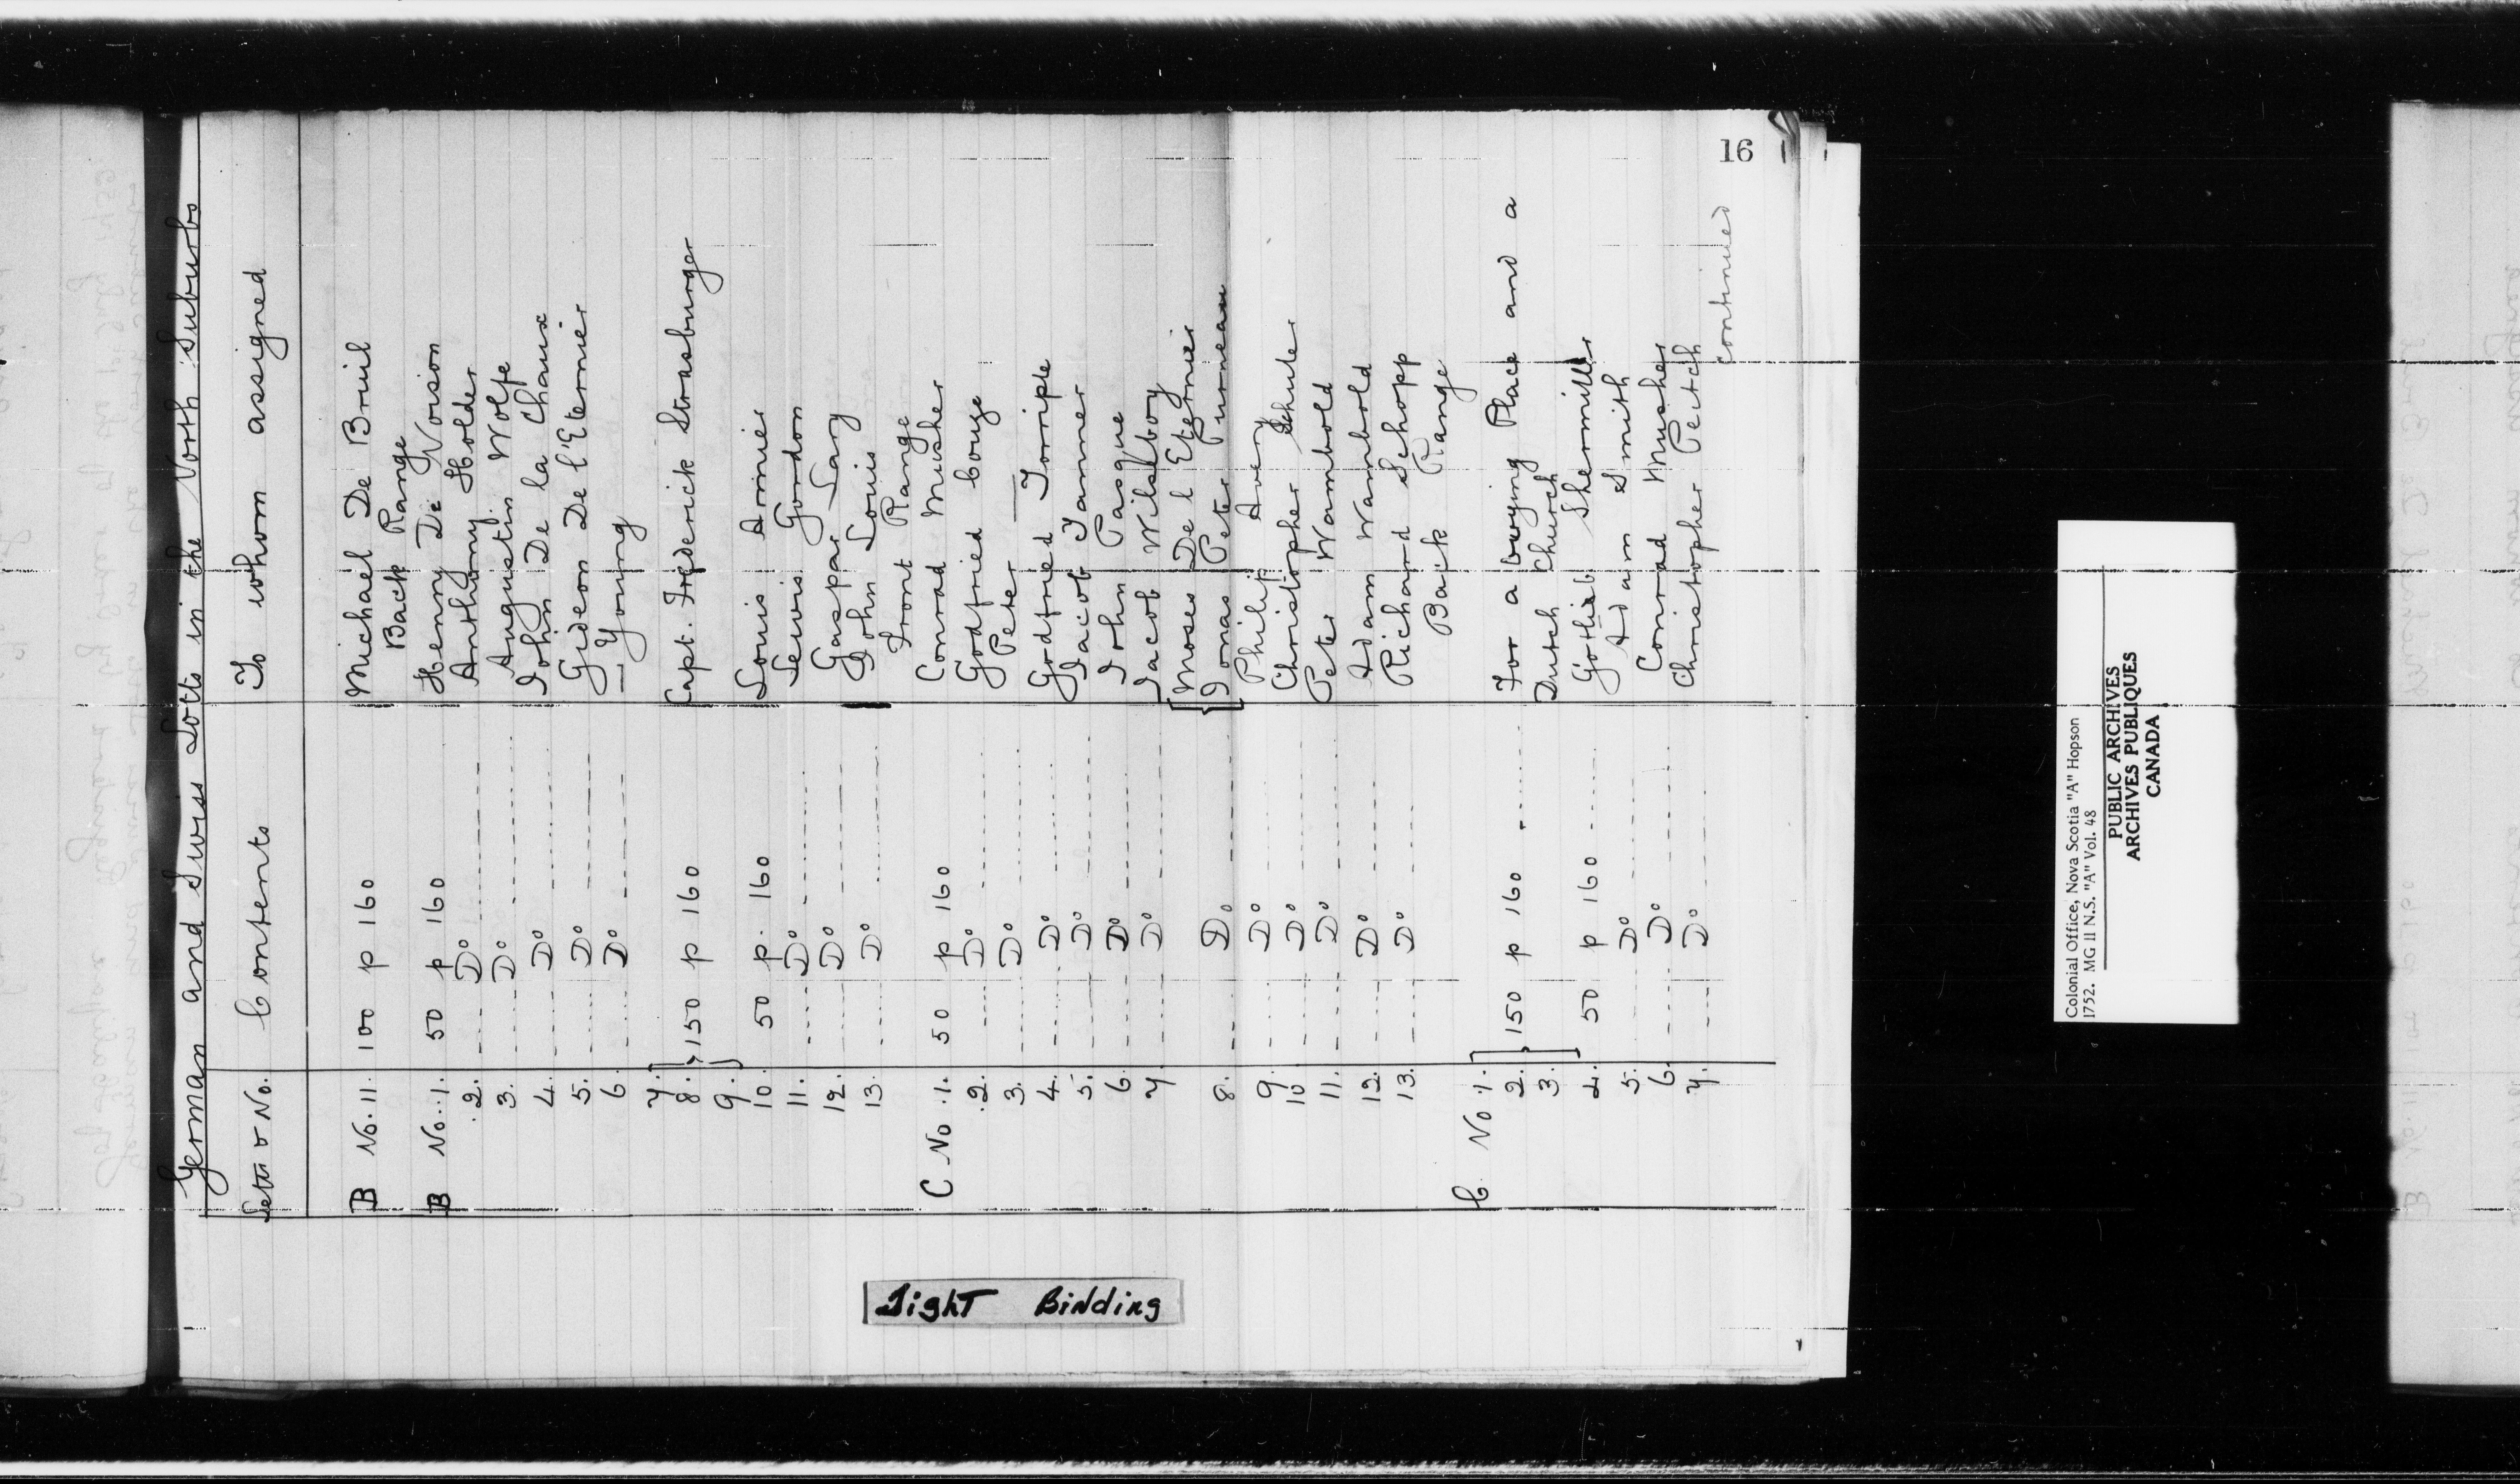 16
German and Swiss Lotts in the North Suburbs
Lettr & No. Contents To whom assigned
B No. 11. 100 p 160 Michael De Bruil
Back Range
B No. 1. 50 p 160 Henry De Voison
2. Do Anthony Holder
3. Do Augustin Wolfe
4. Do John De la Chaux
5. Do Gideon De l'Eternier
6. Do — Young
7.
8. 150 p 160 Capt. Frederick Strasburger
9.
10. 50 p. 160 Louis Arnnier
11. Do Lewis Gordon
12. Do Gaspar Lary
13. Do John Louis
Front Range
C No. 1. 50 p 160 Conrad Musher
2. Do Godfried bouze
3. Do Peter —
4. Do Godfried Torriple
5. Do Jacob Tanner
6. Do John Pasque
7 Do Jacob Wilsboy
Moses De l Eternier
8. Do Jonas Peter Purneau
9. Do Philip Avery
10 Do Christopher Schule
11. Do Peter Wambold
12. Do Adam Wambold
13. Do Richard Schopp
Back Range
C. No 1.
2. 150 p 160 For a burying Place and a
3. Dutch Church
4. 50 p 160 Gotlieb Shermiller
5. Do Adam Smith
6. Do Conrad Musher
7. Do Christopher Peitch
continued
Tight Binding
Colonial Office, Nova Scotia "A" Hopson
1752. MG 11 N.S. "A" Vol. 48
PUBLIC ARCHIVES
ARCHIVES PUBLIQUES
CANADA